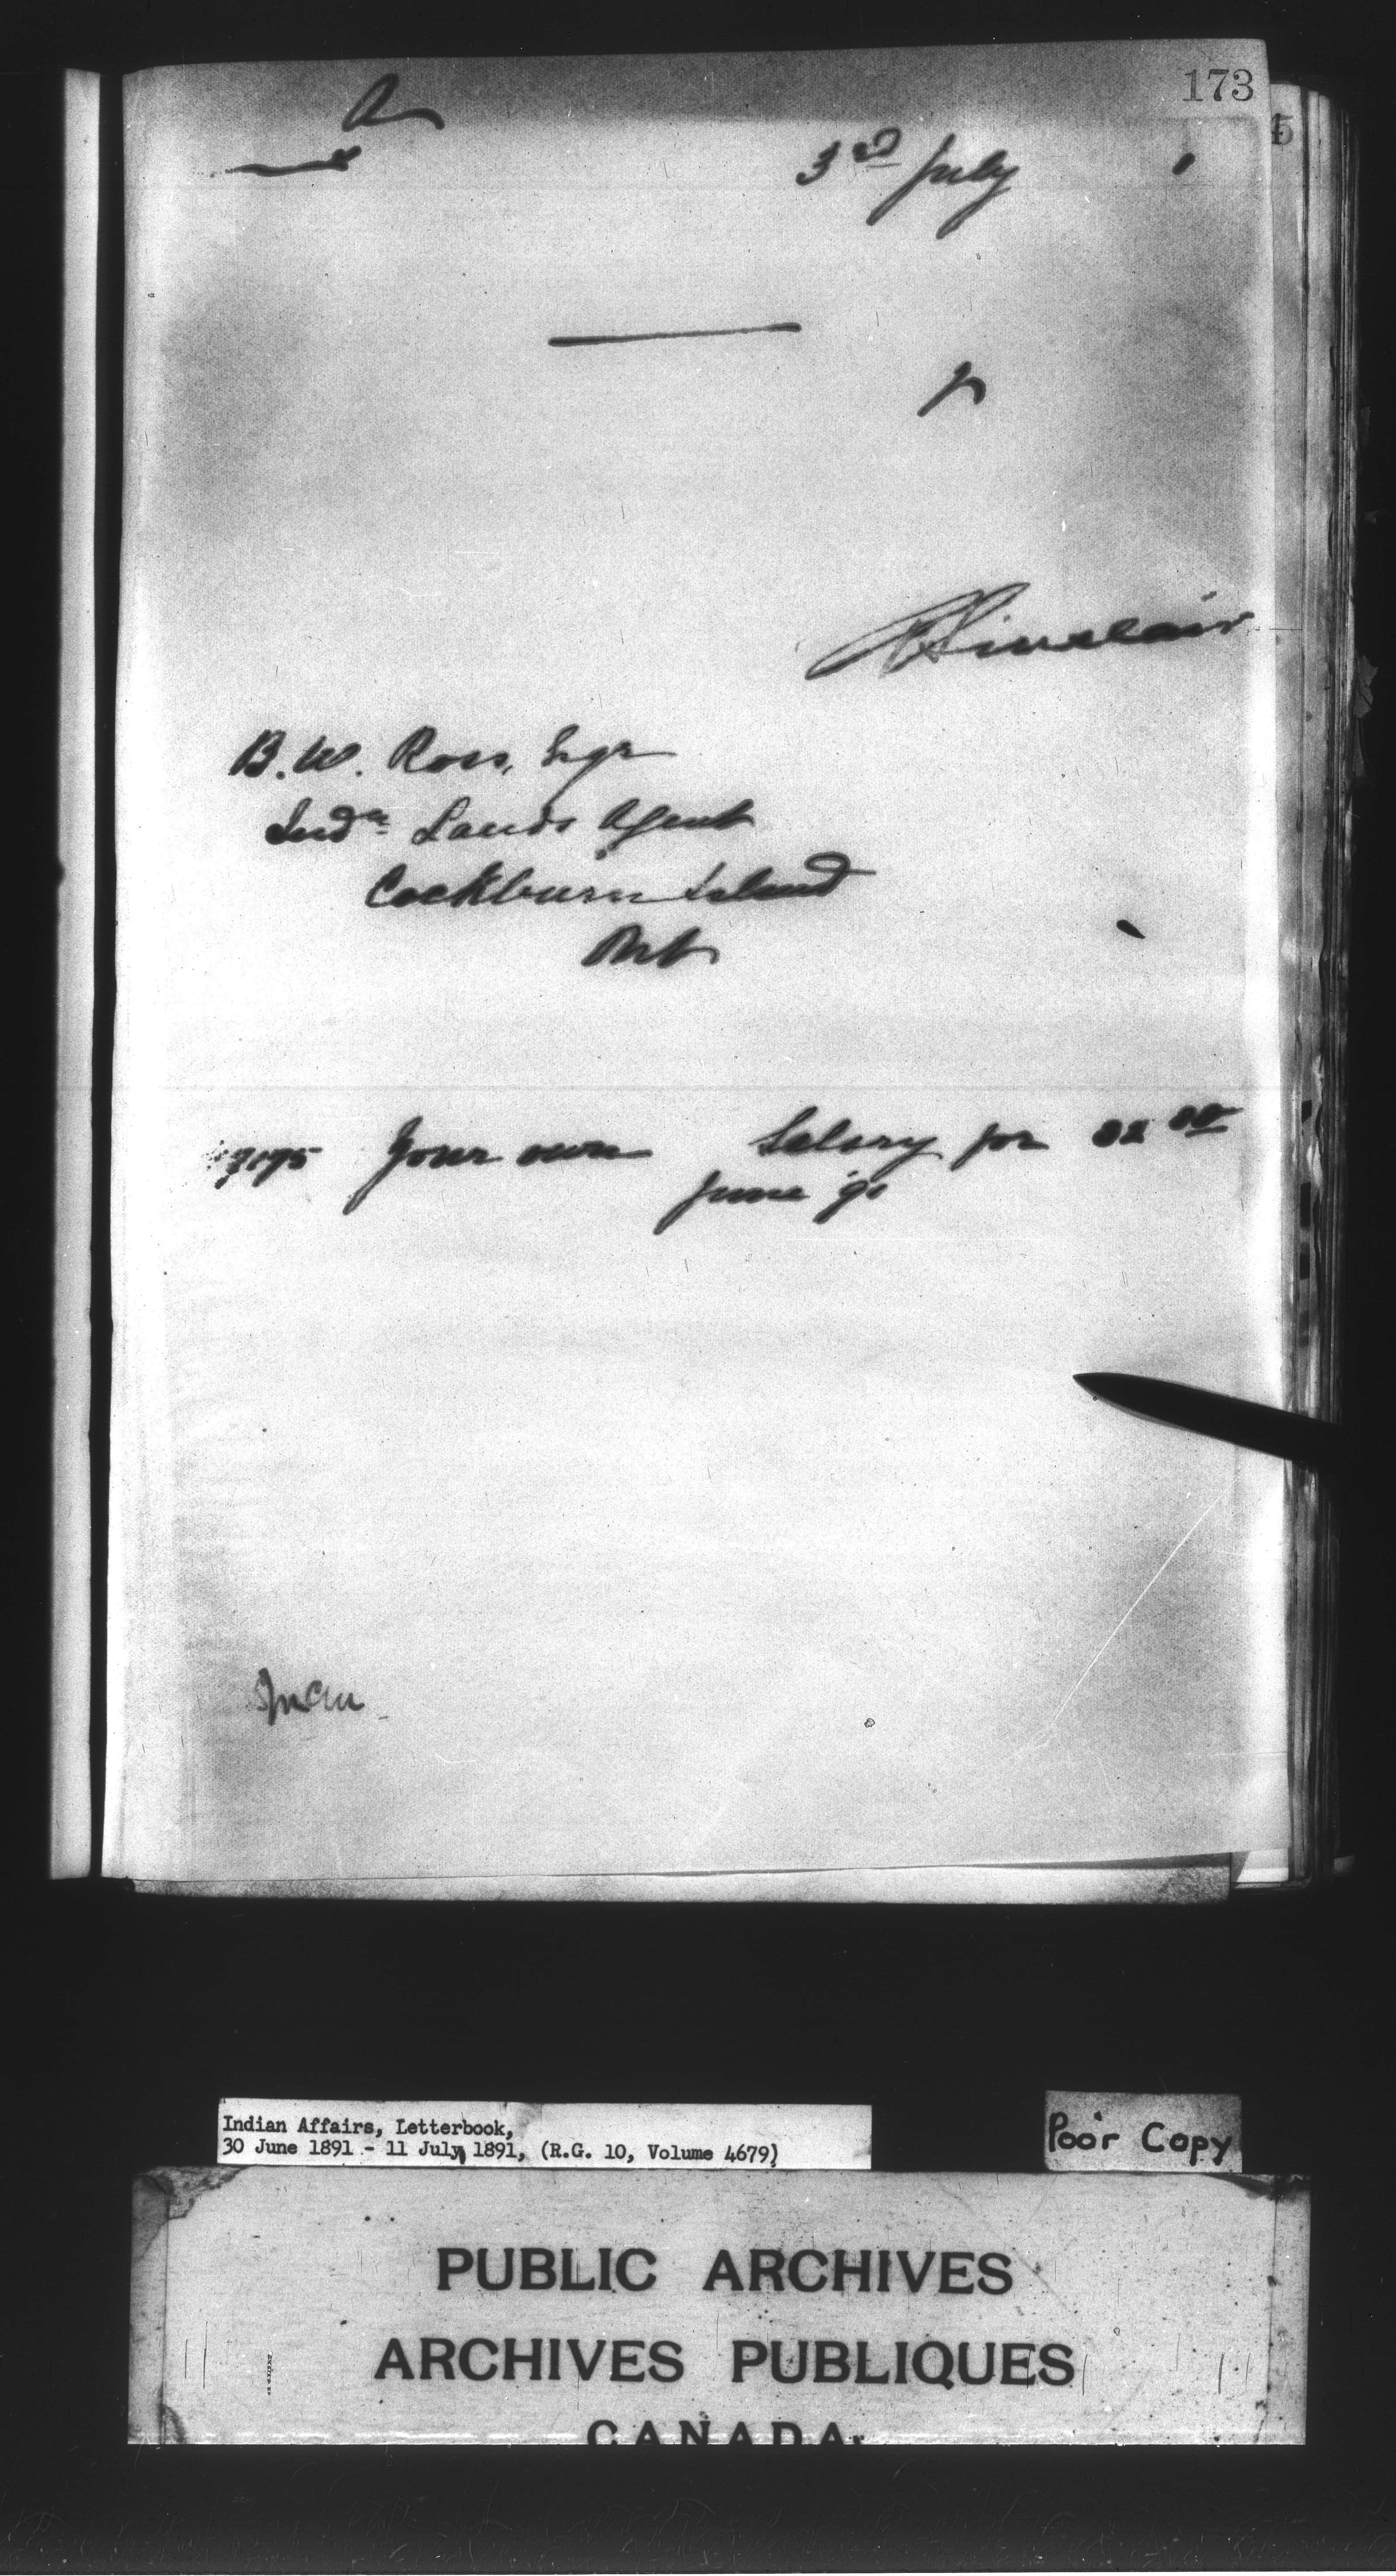 173
3rd July
Sinclair
B.W. Ross, Esqr
Indn Lands Agent
Cockburn Island
Ont
Your own Salary for
June 91
Indian Affairs, Letterbook,
30 June 1891 - 11 July, 1891, (R.G. 10, Volume 4679)
Poor Copy
PUBLIC ARCHIVES
ARCHIVES PUBLIQUES
CANADA